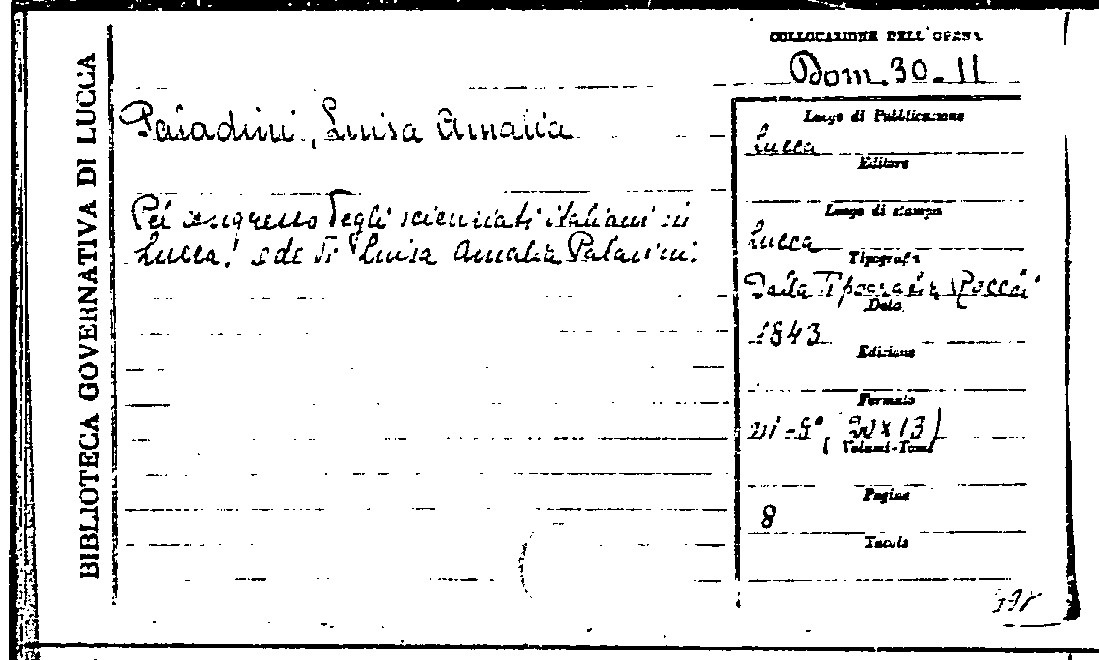 BIBLIOTECA GOVERNATIVA DI LUCCA
COLLOCAZIONE DELL'OPERA
Dom. 30-11
Paladini, Luisa Amalia
Pel congresso degli scienziati italiani in
Lucca! ode di Luisa Amalia Paladini.
Luogo di Pubblicazione
Lucca
Editore
Luogo di stampa
Lucca
Tipografia
Dalla Tipografia Rocchi
Data
1843
Edizione
Formato
in-8°, (20x13)
Volumi-Tomi
Pagine
8
Tavole